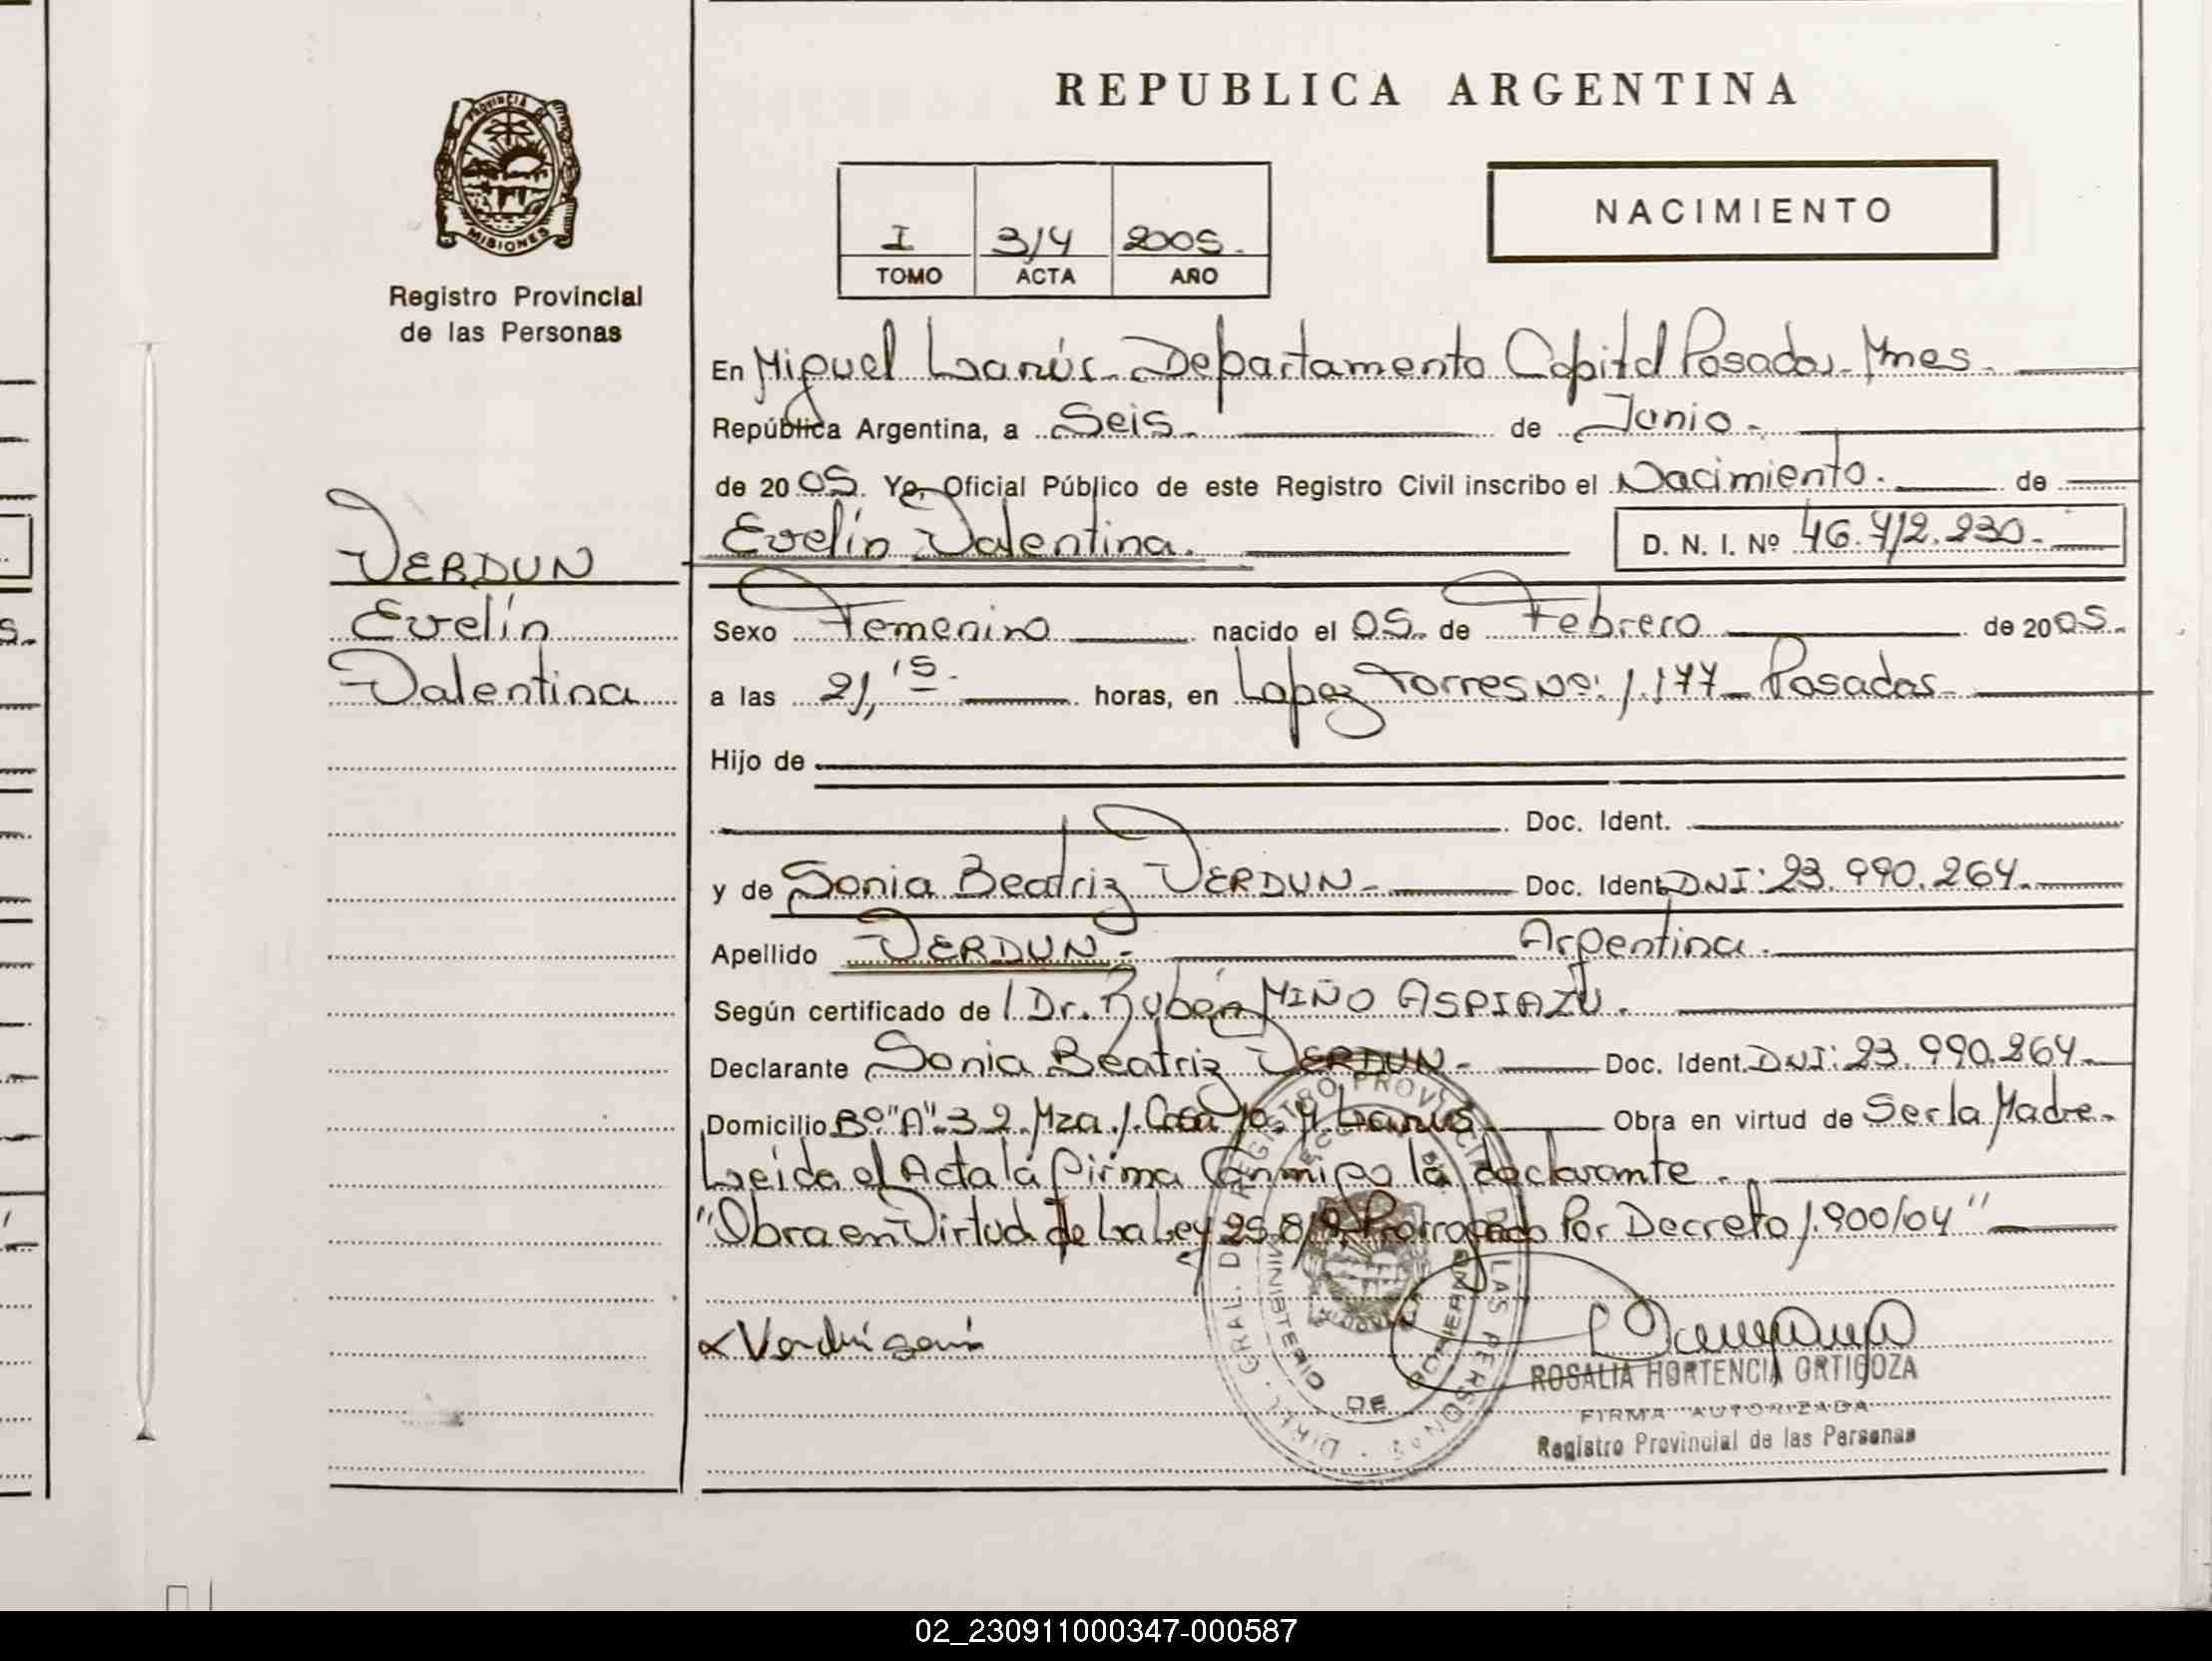 REPUBLICA ARGENTINA
PROVINCIA DE
MISIONES
Registro Provincial
de las Personas
I 3/4 2005.
TOMO ACTA AÑO
NACIMIENTO
En Miguel Lanús - Departamento Capital Posadas - Mnes.
República Argentina, a Seis. de Junio.
de 2005. Yo, Oficial Público de este Registro Civil inscribo el Nacimiento. de
Evelín Valentina. D. N. I. Nº 46.412.230.
VERDUN
Evelín
Valentina
Sexo Femenino nacido el 05. de Febrero de 2005.
a las 21,15. horas, en Lopez Torres Nº: 1.177 - Posadas
Hijo de
Doc. Ident.
y de Sonia Beatriz VERDUN - Doc. Ident. DNI: 23.990.264.
Apellido VERDUN. - Argentina.
Según certificado de Dr. Rubén MIÑO ASPIAZU.
Declarante Sonia Beatriz VERDUN - Doc. Ident. DNI: 23.990.264.
Domicilio Bº "A" 32 Mza. 1. Casa 10. M. Lanús Obra en virtud de Ser la Madre.
Leída el Acta la firma Conmigo la declarante.
"Obra en Virtud de La Ley 25.819 Prorrogado Por Decreto 1.900/04"
DIREC. GRAL. DEL REGISTRO PROVINCIAL DE LAS PERSONAS
MINISTERIO DE GOBIERNO
ROSALIA HORTENCIA ORTIGOZA
FIRMA AUTORIZADA
Registro Provincial de las Personas
02_230911000347-000587